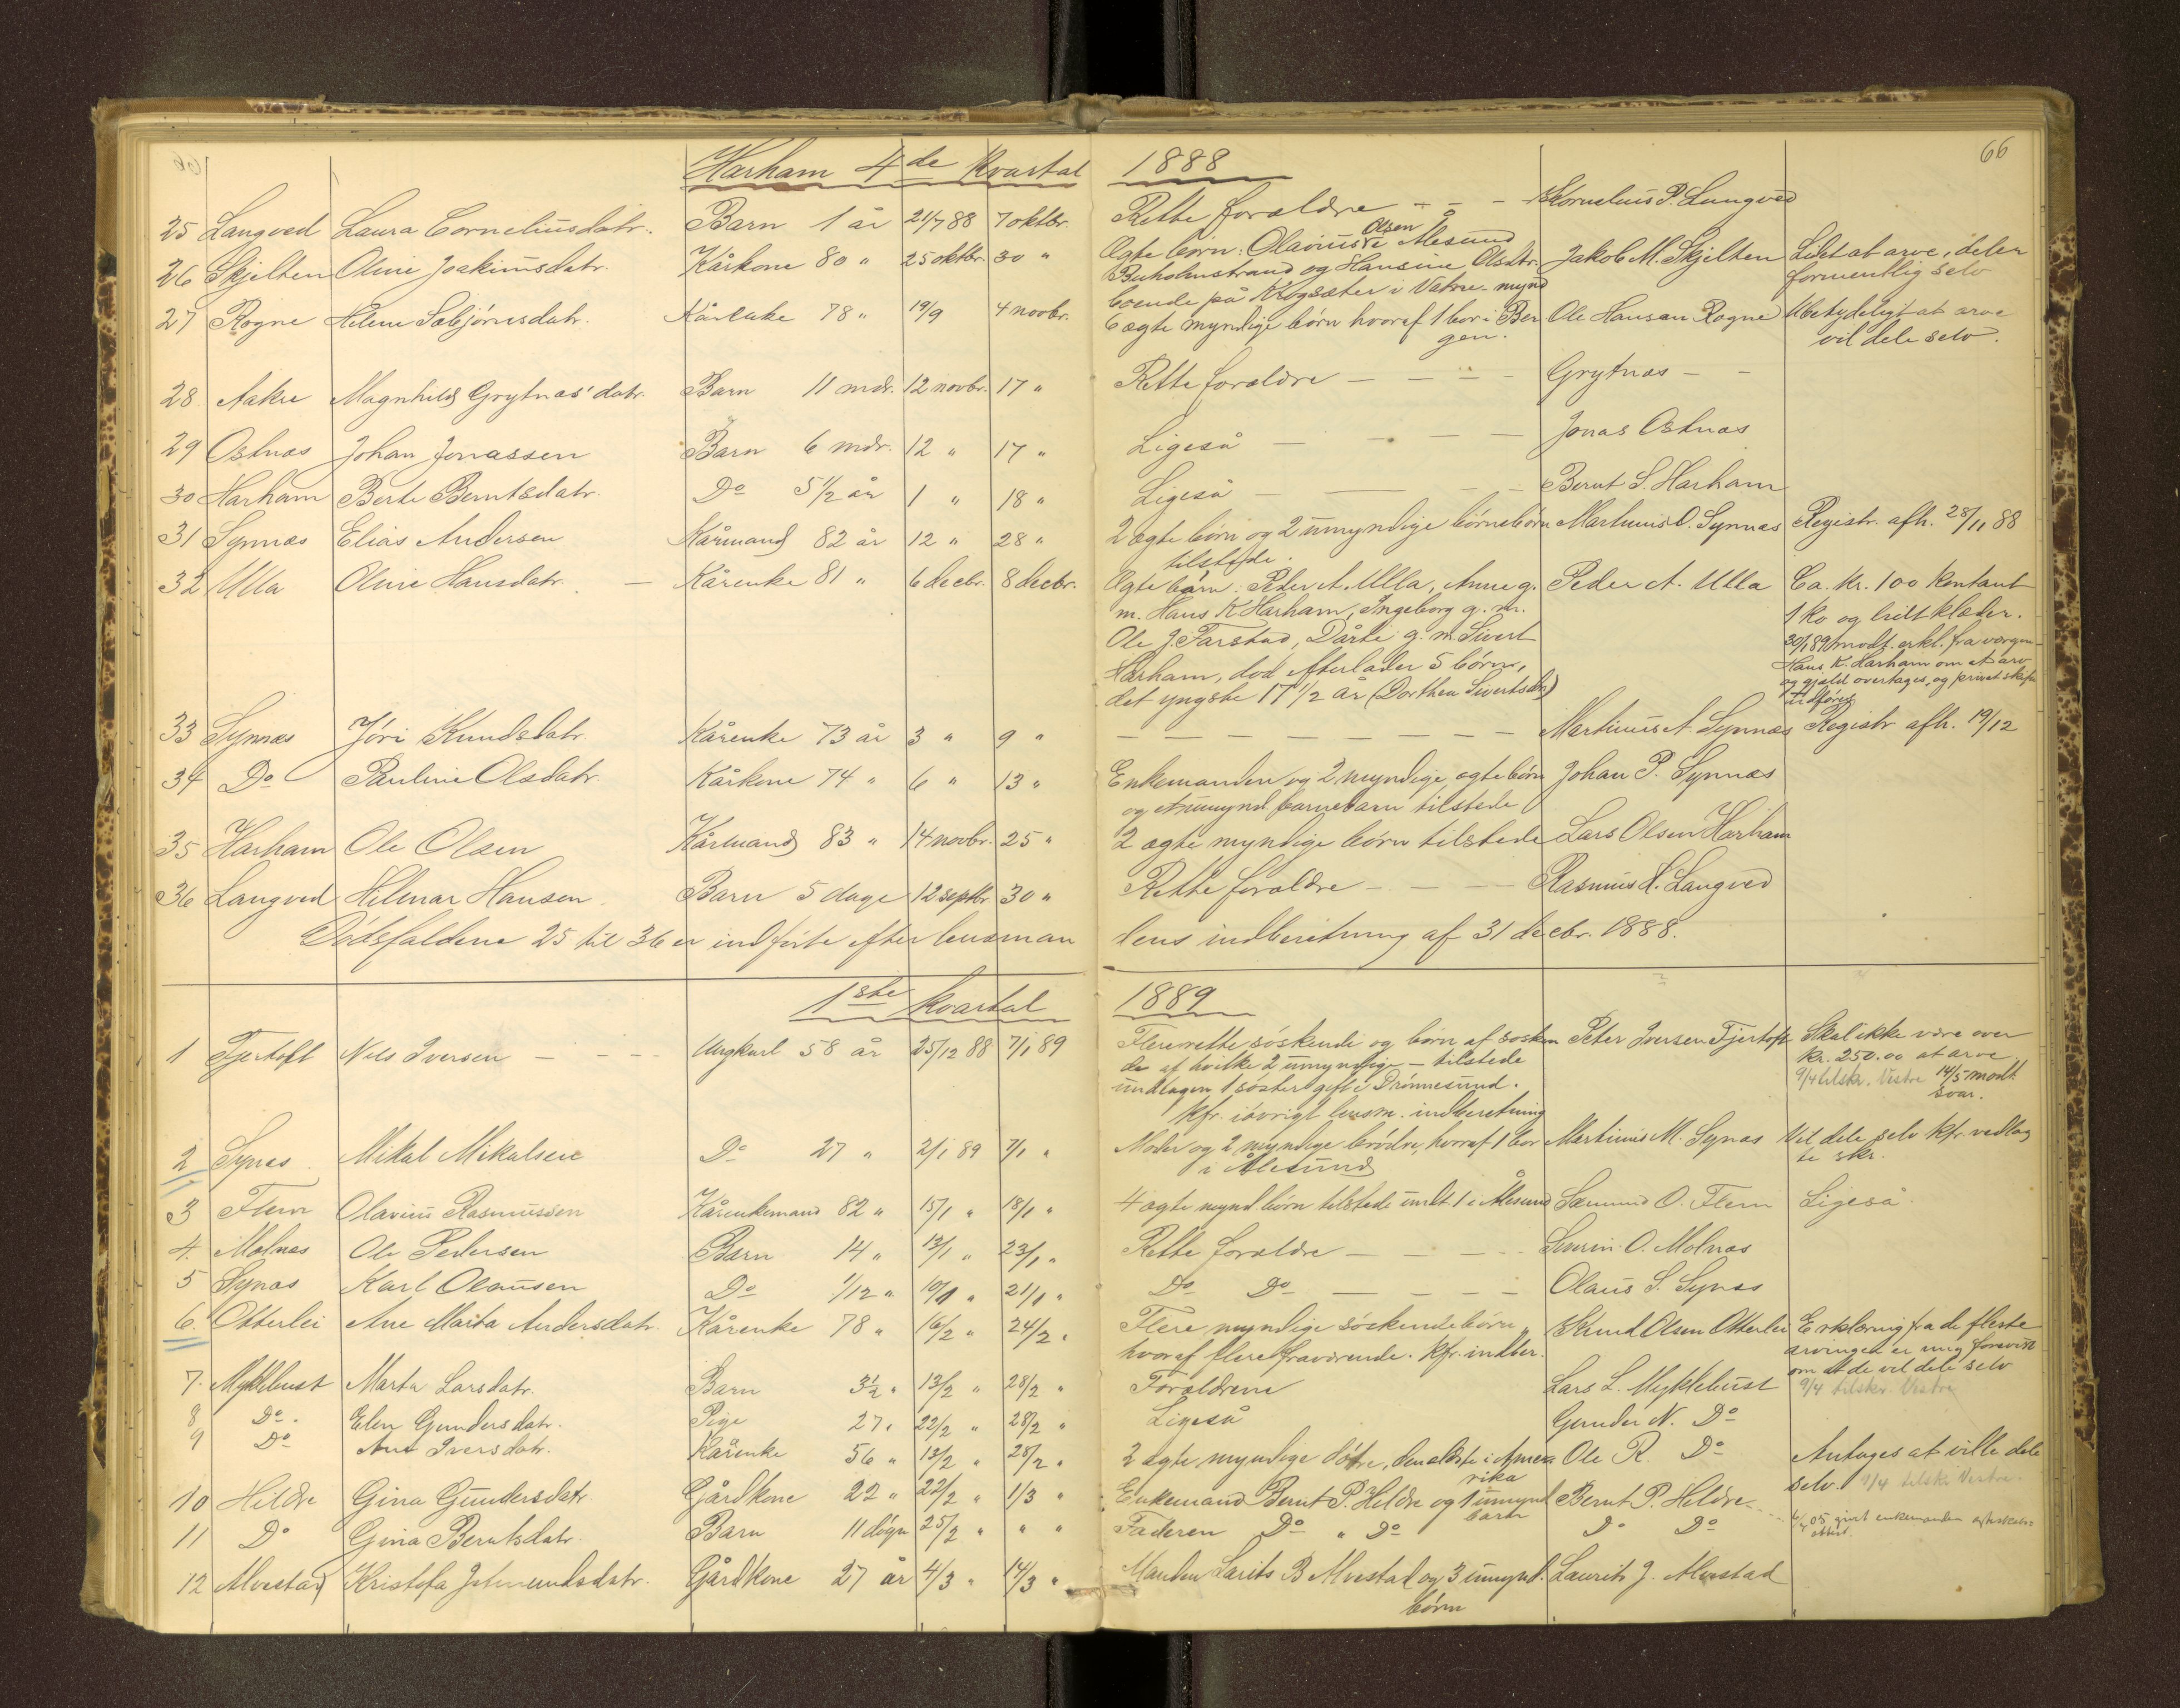 66
Harham 4de Kvartal 1888
25 Langved Laura Corneliusdatr. Barn 1 år 21/7 88 7 oktbr. Rette forældre - - - Kornelius P. Langved
26 Skjelten Oline Joakimsdatr. Kårkone 80 " 25 oktbr. 30 " Ægte børn: Olavius Olsen i Ålesund Jakob M. Skjelten Lidet at arve, deler
Buholmstrand og Hansine Olsdtr. formentlig selv
boende på Krogsæter i Vatne - mynd
27 Rogne Helene Sæbjørnsdatr. Kårenke 78 " 19/9 4 novbr. 6 ægte myndige børn hvoraf 1 bor i Ber Ole Hansen Rogne Ubetydeligt at arve
gen. vil dele selv.
28 Aakre Magnhild Grytnæs' datr. Barn 11 mdr. 12 novbr. 17 " Rette forældre - - - - Grytnæs - -
29 Østnæs Johan Jonassen Barn 6 mdr. 12 " 17 " Ligeså - - - - Jonas Østnæs
30 Harham Berte Berntsdatr. Do 5 1/2 år 1 " 18 " Ligeså - - - - Bernt S. Harham
31 Synnæs Elias Andersen Kårmand 82 år 12 " 28 " 2 ægte børn og 2 umyndige børnebørn Martinus O. Synnæs Registr. afh. 28/11 88
tilstede.
32 Ulla Oline Hansdatr. - Kårenke 81 " 6 decbr. 8 decbr. Ægte børn: Peder A. Ulla, Anne g. Peder A. Ulla Ca. kr. 100 kontant
m. Hans K Harham, Ingeborg g. m. 1 ko og lidt klæder.
Ole J. Farstad, Dårte g. m. Sivert 30/1 89 modt. erkl. fraværgen
Harham, død efterlader 5 børn, Hans K. Harham om at arv
det yngste 17 1/2 år (Dorthea Sivertsdtr) og gjæld overtages, og privat skifte
udføres
33 Synnæs Jøri Knudsdatr. Kårenke 73 år 3 " 9 " - - - - - - - - Martinus A. Synnæs Registr afh. 19/12
34 Do Pauline Olsdatr. Kårkone 74 " 6 " 13 " Enkemanden og 2 myndige ægte børn Johan P. Synnæs
og 1 umynd. barnebarn tilstede
35 Harham Ole Olsen Kårmand 83 " 14 novbr. 25 " 2 ægte myndige børn tilstede Lars Olsen Harham
36 Langved Hilmar Hansen Barn 5 dage 12 septbr. 30 " Rette forældre - - - Rasmus H. Langved
Dødsfaldene 25 til 36 er indførte efter lensman dens indberetning af 31 decbr. 1888.
1ste kvartal 1889
1 Fjertoft Nils Iversen - - - Ungkarl 58 år 25/12 88 7/1 89 Flere rette søskende og børn af søsken Peter Iversen Fjertoft Skal ikke være over
de af hvilke 2 umyndig - tilstede kr. 250.00 at arve
undtagen 1 søster gift i Drønnesund. 9/4 tilskr. Vestre 14/5 modt.
kfr. iøvrigt lensm. indberetning svar.
2 Synes Mikal Mikalsen Do 27 " 2/1 89 7/1 " Moder og 2 myndige brødre, hvoraf 1 bor Martinus M. Synæs Vil dele selv kfr. vedlag
i Ålesund te skr.
3 Flem Olavius Rasmussen Kårenkemand 82 " 15/1 " 18/1 " 4 ægte mynd børn tilstede undt. 1 i Ålesund Sæmund O. Flem Ligeså
4. Molnæs Ole Pedersen Barn 14 " 13/1 " 23/1 " Rette forældre - - - - O. Molnæs
5 Synæs Karl Olausen Do 1/12 " 10/1 " 21/1 " Do Do - - - - Olaus S. Synæs
6. Otterlei Ane Marta Andersdatr. Kårenke 78 " 16/2 " 24/2 " Flere myndige søskendebørn, Knud Olsen Otterlei Erklæring fra de fleste
hvoraf flere fraværende. Kfr. indber. arvinger er mig forevist
om at de vil dele selv
7. Myklebust Marta Larsdatr. Barn 3 1/2 " 13/2 " 28/2 " Forældrene Lars L. Myklebust 9/4 tilskr. Vestre
8 Do. Elen Gundersdatr. Pige 27 " 22/2 " 28/2 " Ligeså Gunder N. Do
9 Do Ane Iversdatr. Kårenke 56 " 13/2 " 28/2 " 2 ægte myndige døtre, den ældste i Ame Ole R. Do Antages at ville dele
rika selv. 9/4 tilskr. Vestre.
10 Hildre Gina Gundersdatr. Gårdkone 22 " 22/2 " 1/3 " Enkemand Bernt P. Hildre og 1 umynd Bernt P. Hildre
barn
11 Do Gina Berntsdatr. Barn 11 døgn 25/2 " " " Faderen Do " Do Do Do
12 Alvestad Kristofa Jetmundsdatr. Gårdkone 27 år 4/3 " 14/3 " Manden Larits B Alvestad og 3 umynd. Laurits J. Alvestad
børn